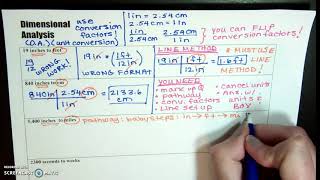 Dimensional Analysis
(D.A.) (unit conversion)
use conversion factors!
1in = 2.54cm
1in / 2.54cm
2.54cm / 1in
you can FLIP conversion factors!
19 inches to feet
19 / 12 WRONG WORK!
19in (1ft / 12in) WRONG FORMAT
LINE METHOD
* MUST USE LINE METHOD!
19in | 1ft / 12in = 1.6ft
840 inches to cm
840in | 2.54cm / 1in = 2133.6 cm
YOU NEED
• make up Q
• pathway
• conv. factors
• cancel units
• Ans. w/ units & BOX
pathway: baby steps: in → ft → mi
2300 seconds to weeks
RECORDED WITH
SCREENCAST-O-MATIC